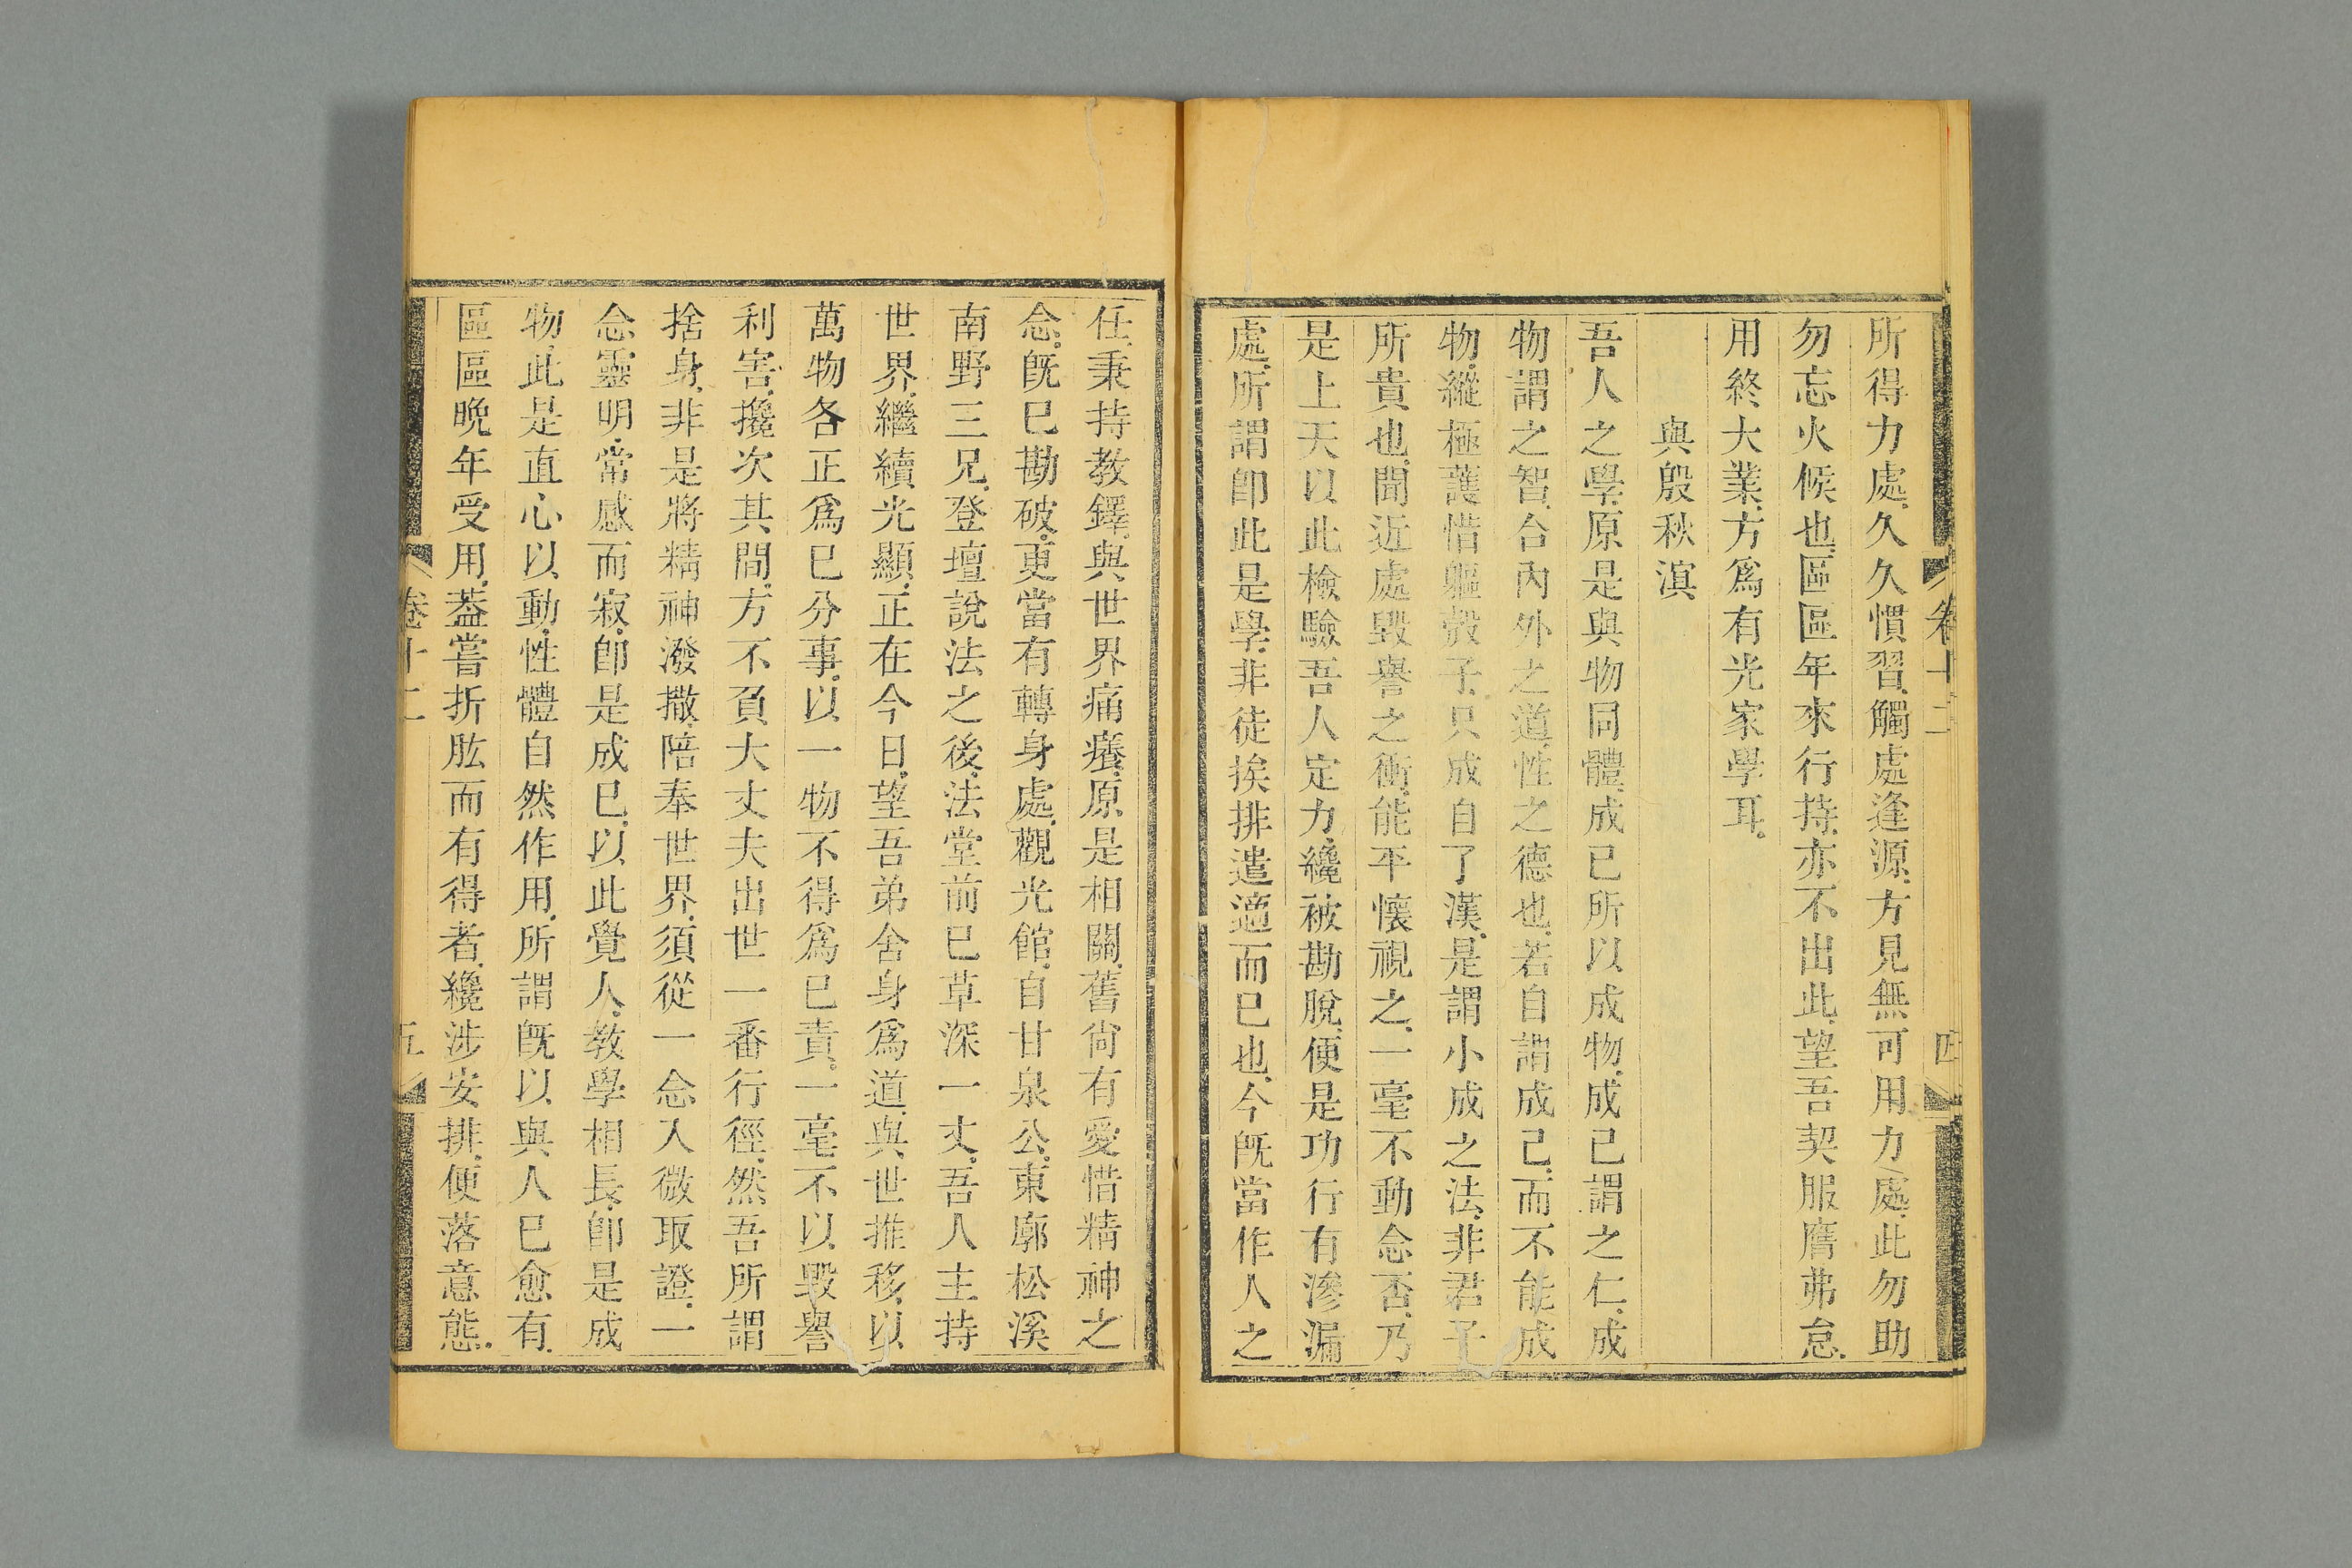 卷十二
四
所得力處久久慣習觸處逢源方見無可用力處此勿助
勿忘火候也區區年來行持亦不出此望吾契服膺弗怠
用終大業方爲有光家學耳
與殷秋溟
吾人之學原是與物同體成已所以成物成已謂之仁成
物謂之智合內外之道性之德也若自謂成已而不能成
物縱極護惜軀殼子只成自了漢是謂小成之法非君子
所貴也聞近處毀譽之衝能平懷視之一毫不動念否乃
是上天以此檢驗吾人定力纔被勘脫便是功行有滲漏
處所謂卽此是學非徒挨排遣適而已也今旣當作人之
任秉持教鐸與世界痛癢原是相關舊尙有愛惜精神之
念旣已勘破更當有轉身處觀光館自甘泉公東廓松溪
南野三兄登壇說法之後法堂前已草深一丈吾人主持
世界繼續光顯正在今日望吾弟舍身爲道與世推移以
萬物各正爲已分事以一物不得爲已責一毫不以毀譽
利害攙次其間方不負大丈夫出世一番行徑然吾所謂
捨身非是將精神潑撒陪奉世界須從一念入微取證一
念靈明常感而寂卽是成已以此覺人教學相長卽是成
物此是直心以動性體自然作用所謂旣以與人已愈有
區區晚年受用葢嘗折肱而有得者纔涉安排便落意態
卷十二
五